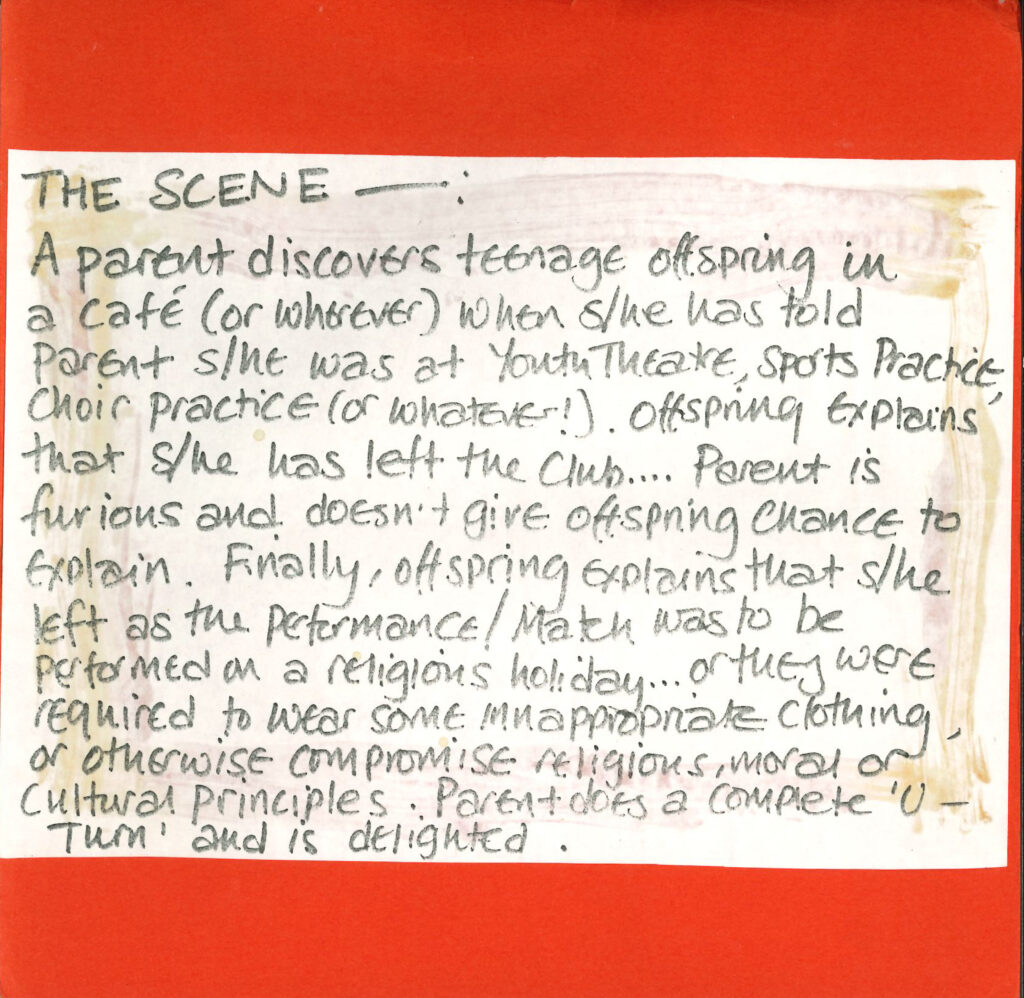 THE SCENE —:
A parent discovers teenage offspring in
a café (or wherever) when s/he has told
parent s/he was at Youth Theatre, Sports Practice,
Choir practice (or whatever!). Offspring explains
that s/he has left the Club.... Parent is
furious and doesn't give offspring chance to
explain. Finally, offspring explains that s/he
left as the performance/Match was to be
performed on a religious holiday... or they were
required to wear some innappropriate clothing,
or otherwise compromise religious, moral or
Cultural principles. Parent does a complete 'U-
Turn' and is delighted.